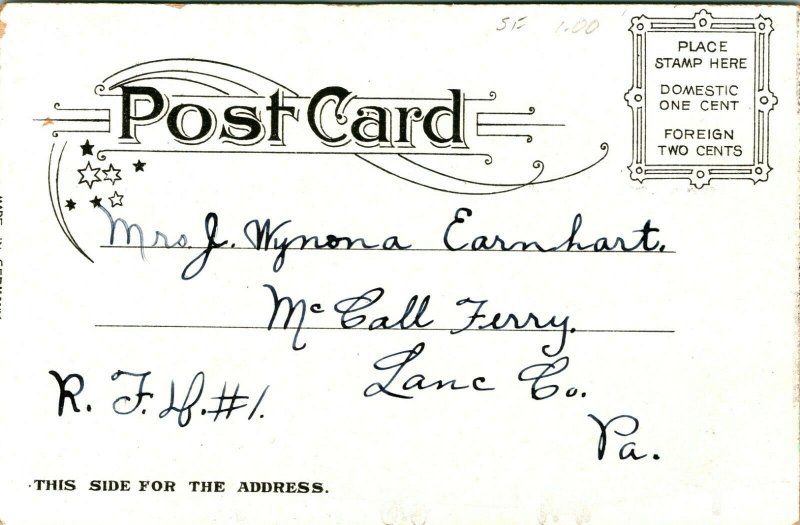 SF 1.00
PLACE
STAMP HERE
DOMESTIC
ONE CENT
FOREIGN
TWO CENTS
Post Card
Mrs. J. Wynona Earnhart.
Mc Call Ferry.
Lanc Co.
R. F. D. #1.
Pa.
THIS SIDE FOR THE ADDRESS.
MADE IN GERMANY